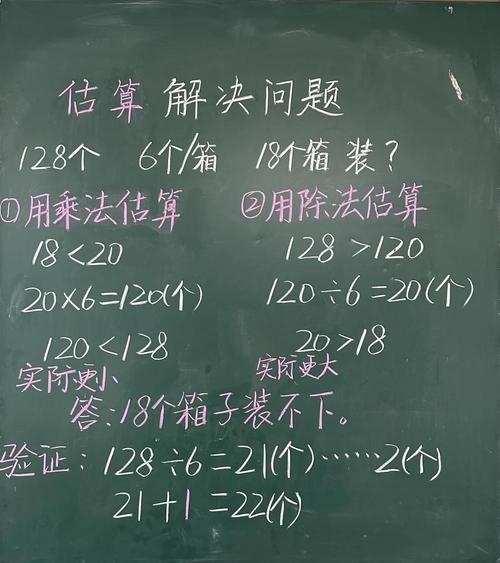 估算 解决问题
128个 6个/箱 18个箱 装?
①用乘法估算 ②用除法估算
18<20 128>120
20×6=120(个) 120÷6=20(个)
120<128 20>18
实际更小 实际更大
答:18个箱子装不下。
验证:128÷6=21(个)……2(个)
21+1=22(个)